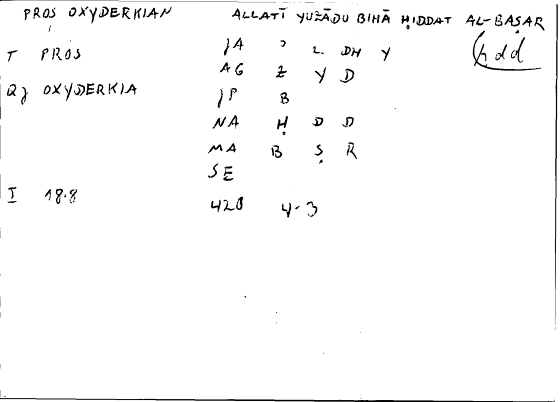 PROS OXYDERKIAN ALLATĪ YUZĀDU BIHĀ ḤIDDAT AL-BAṢAR
ḥdd
T PROS JA ʾ L DH Y
AG Z Y D
QJ OXYDERKIA JP B
NA Ḥ D D
MA B Ṣ R
SE
I 18.8 420 4-3